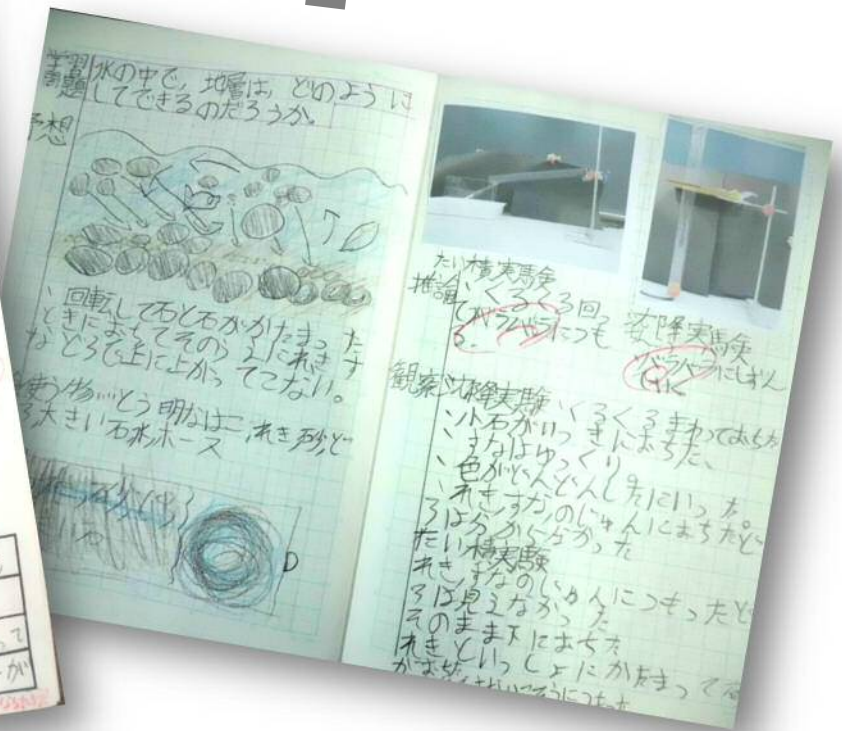 学習問題
水の中で、地層は、どのように
してできるのだろうか。
予想
、回転して石と石がかたまった
ときにおちてその
などろで上に上がってこない。
使う物…とう明なはこ、れき砂ど
ろ大きい石水ホース
たい積実験
推論、くるくる回っ
てバラバラにつも
る。
沈降実験
バラバラにしずん
でいく
観察沈降実験、くるくるまわっておちた
、小石がいっきにおちた、
、すなはゆっくり。
、色がどんどんしたにいった。
、れき、すなのじゅんにおちたど
ろは分からなかった
たい積実験
れき、すなのじゅんにつもったど
ろは見えなかった
そのまま下におちた
れきといっしょにかたまって
って
が